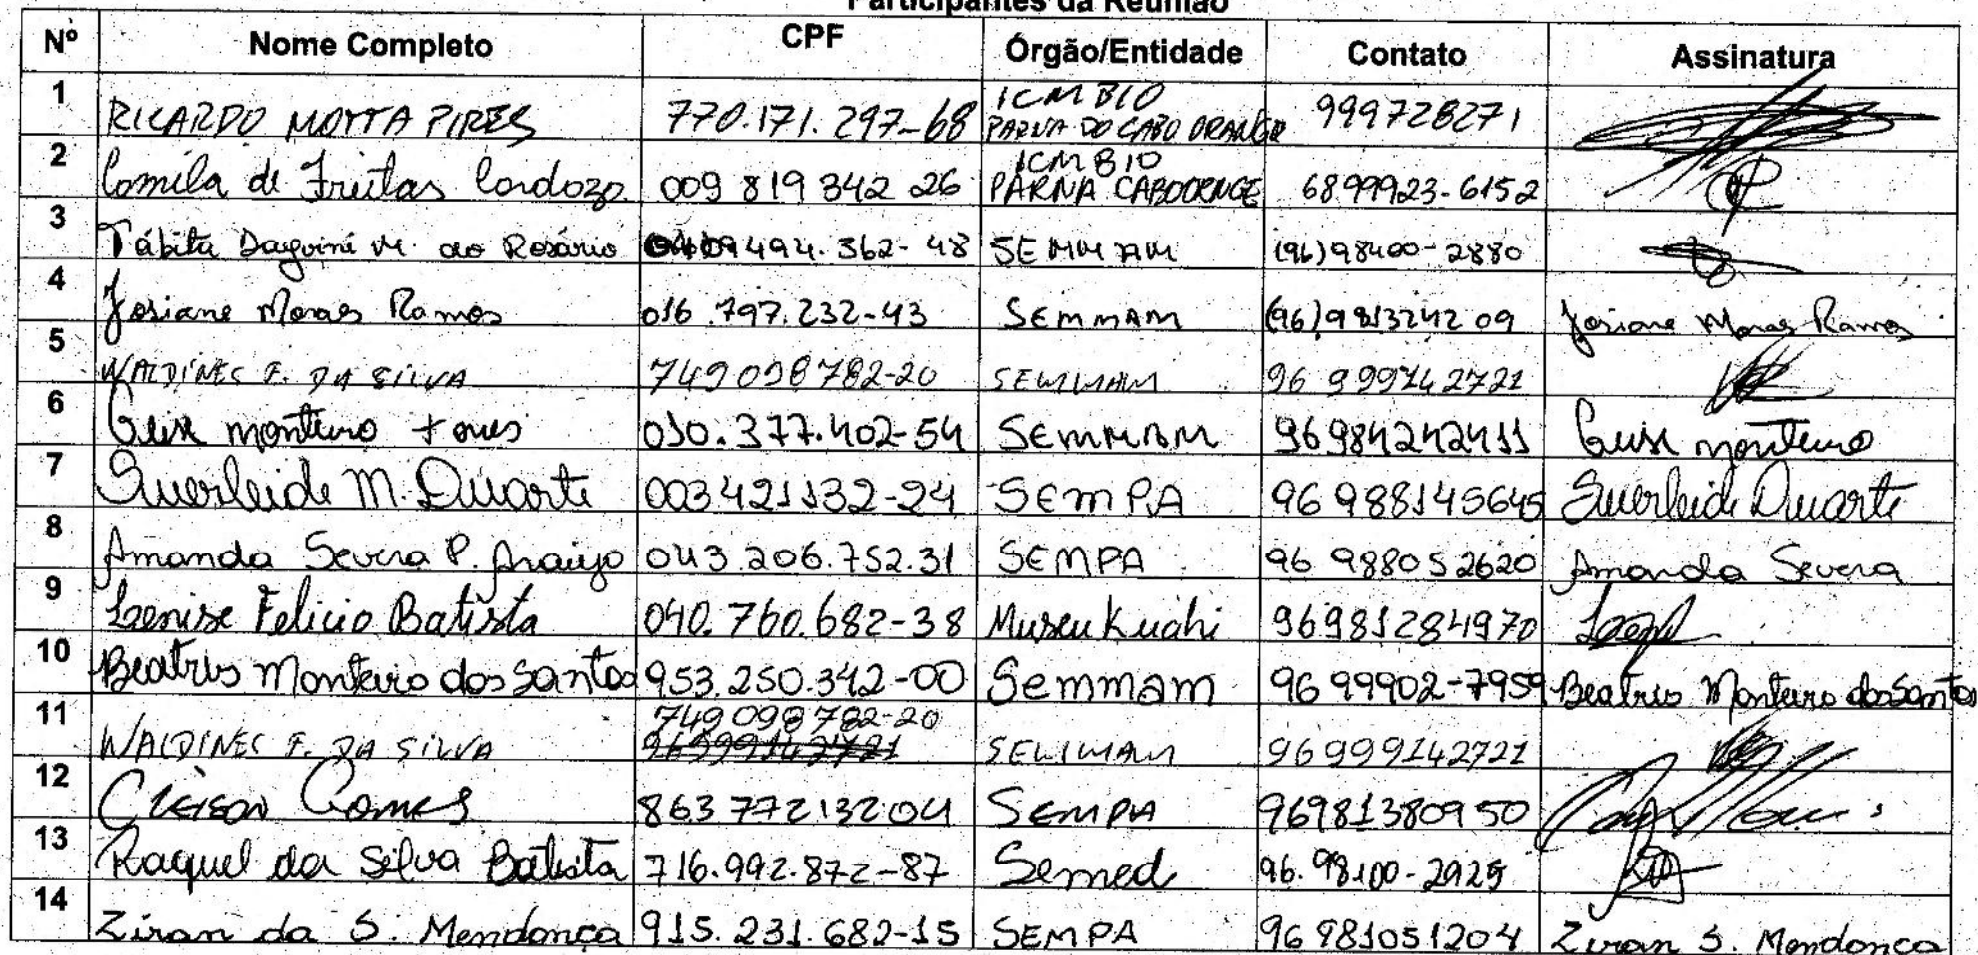 Participantes da Reunião
Nº Nome Completo CPF Órgão/Entidade Contato Assinatura
1 RICARDO MOTTA PIRES 770.171.297-68 ICMBIO PARNA DO CABO ORANGE 999728271
2 Camila de Freitas Cardozo 009 819 342 26 ICMBIO PARNA CABOORNGE 6899923-6152
3 Tábita Daguiné M. do Rosário 494.362-48 SEMMAM (96)98400-2880
4 Josiane Moraes Ramos 016.797.232-43 SEMMAM (96)981324209 Josiane Moraes Ramos
5 WALDINEC F. DA SILVA 749098782-20 SEMMAM 96 999142721
6 Geise monteiro 010.377.402-54 SEMMAM 96984242411 Geise monteiro
7 Suerleide M. Duarte 003421132-24 SEMPA 96 988145645 Suerleide Duarte
8 Amanda Severa P. Araújo 043.206.752.31 SEMPA 96 988052620 Amanda Severa
9 Lenise Felicio Batista 040.760.682-38 Museu Kuahi 96981284970
10 Beatris Monteiro dos Santos 953.250.342-00 Semmam 96 99902-7959 Beatris Monteiro dos Santos
11 WALDINEC F. DA SILVA 749098782-20 96999142721 SEMMAM 96999142721
12 Cleison Gomes 863 772132 04 SEMPA 96981380950
13 Raquel da Silva Batista 716.992.872-87 Semed 96.98100-2925
14 Ziran da S. Mendonça 915.231.682-15 SEMPA 96 981051204 Ziran S. Mendonça